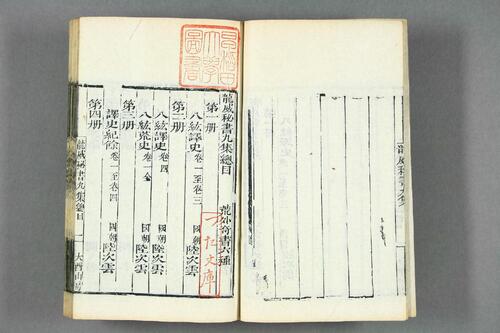 早稻田大學圖書
龍威秘書九集總目
荒外奇書六種
第一册
八紘譯史 卷一至卷三 國朝陸次雲
第二册
八紘譯史 卷四 國朝陸次雲
八紘荒史 卷全 國朝陸次雲
第三册
譯史紀餘 卷一至卷四 國朝陸次雲
第四册
龍威秘書九集總目 一 大酉山房
文庫